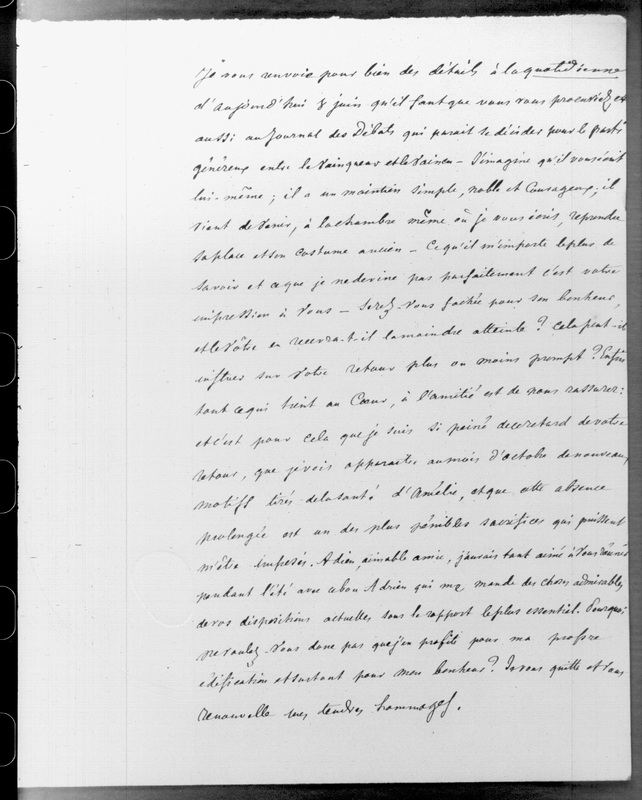 Je vous renvoie pour bien des détails à la quotidienne
d'aujourd'hui 8 juin qu'il faut que vous vous procuriez et
aussi au Journal des Débats qui parait se décider pour le parti
généreux entre le Vainqueur et le Vaincu — J'imagine qu'il vous écrit
lui-même ; il a un maintien simple, noble et Courageux ; il
vient de venir, à la chambre même où je vous écris, reprendre
sa place et son costume ancien — Ce qu'il m'importe le plus de
savoir et ce que je ne devine pas parfaitement c'est votre
impression à Vous — Serez-Vous fachée pour son bonheur,
et le Vôtre en recevra-t-il la moindre atteinte ? Cela peut-il
influer sur Votre retour plus ou moins prompt ? Enfin
tout ce qui tient au Cœur, à l'amitié est de nous rassurer :
et c'est pour cela que je suis si peiné de ce retard de votre
retour, que je vois apparaitre au mois d'octobre de nouveaux
motifs tirés de la santé d'Amélie, et que cette absence
prolongée est un des plus pénibles sacrifices qui puissent
m'être imposés. Adieu, aimable amie, j'aurais tant aimé à Vous
pendant l'été avec ce bon Adrien qui me mande des choses admirables
de vos dispositions actuelles sous le rapport le plus essentiel. Pourquoi
ne voulez-Vous donc pas que j'en profite pour ma propre
édification et surtout pour mon bonheur ? Je vous quitte et vous
renouvelle mes tendres hommages.